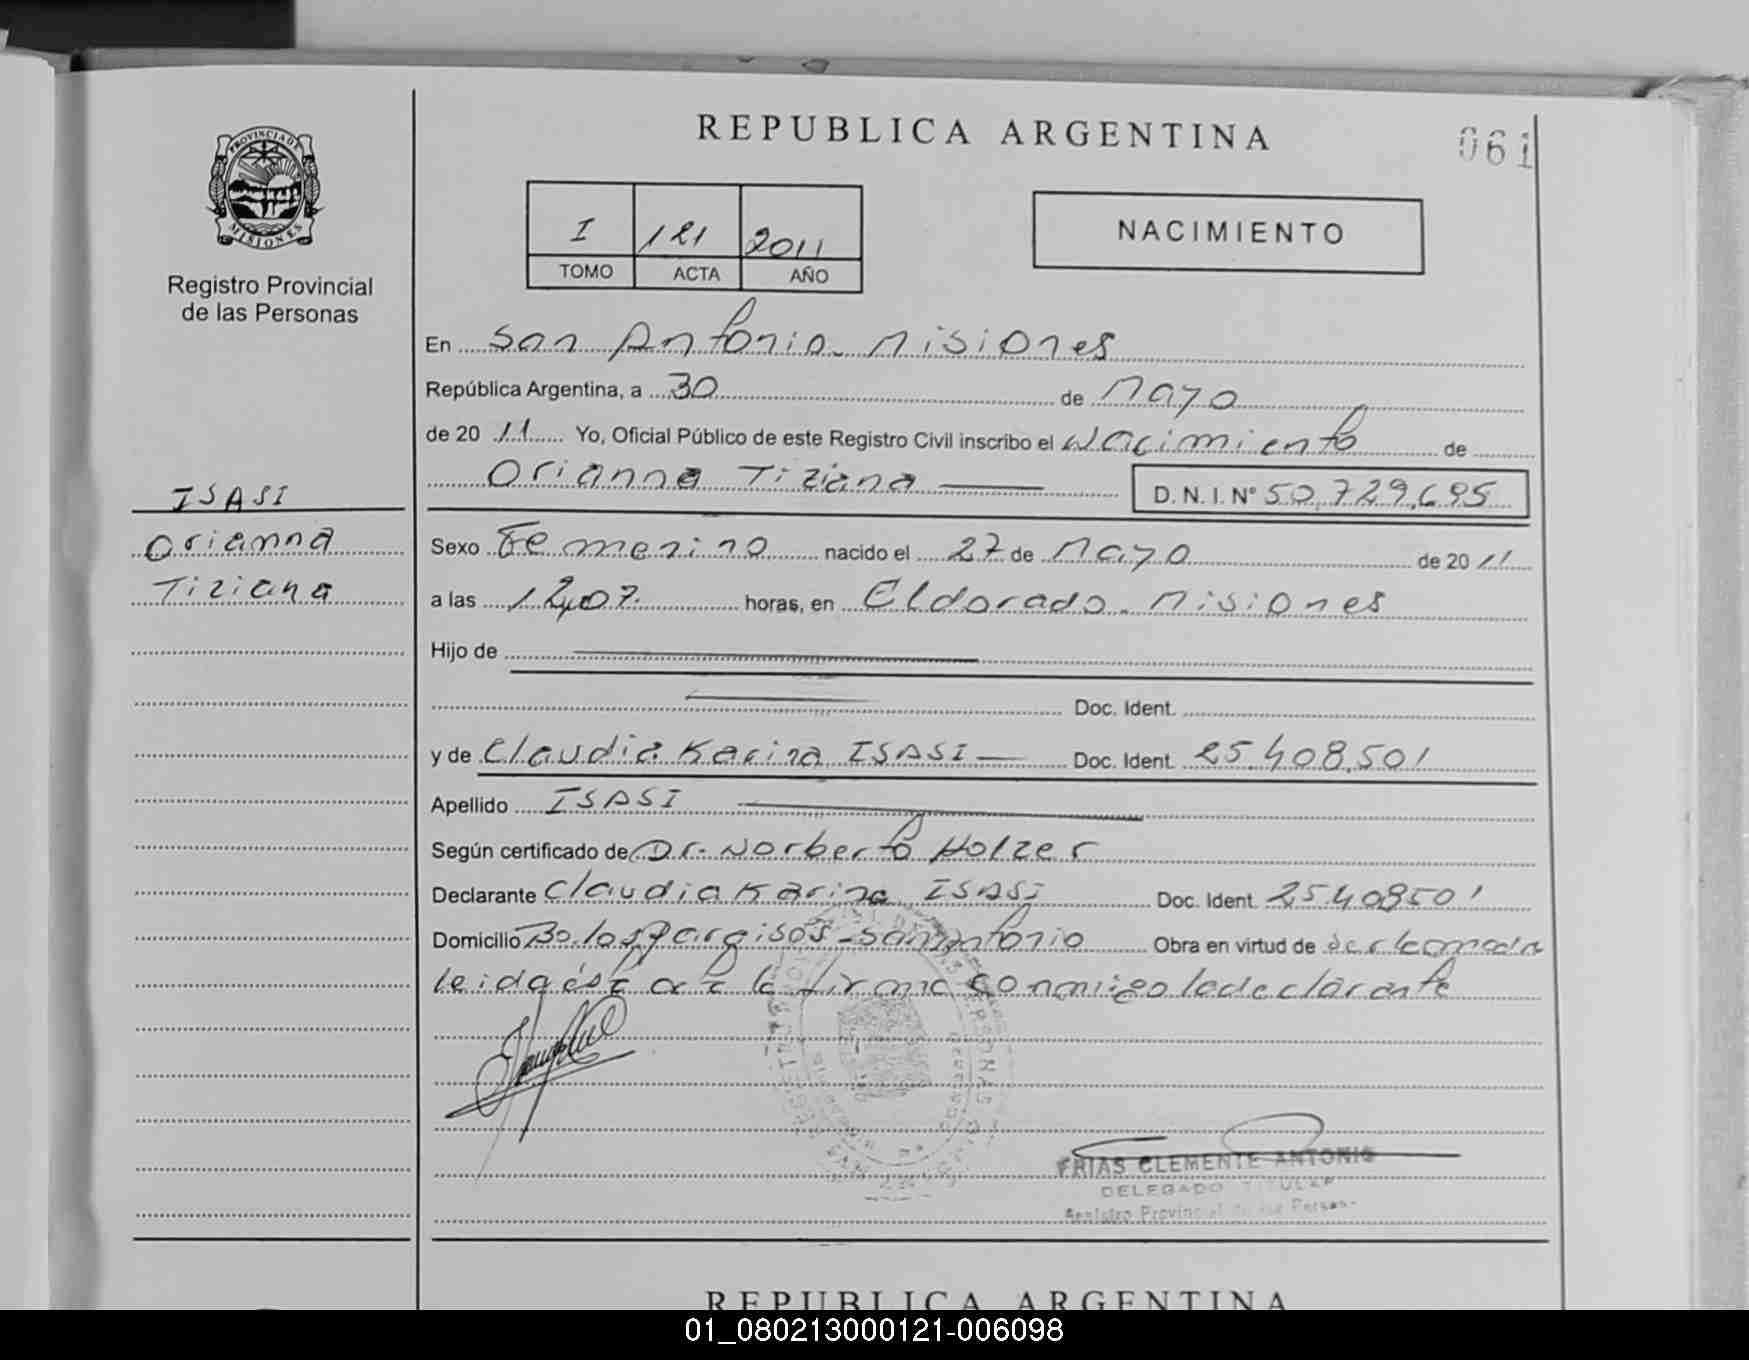 REPUBLICA ARGENTINA
061
PROVINCIA DE
MISIONES
Registro Provincial
de las Personas
I 121 2011
TOMO ACTA AÑO
NACIMIENTO
En San Antonio. Misiones
República Argentina, a 30 de Mayo
de 20 11 Yo, Oficial Público de este Registro Civil inscribo el Nacimiento de
Orianna Tiziana D. N. I. N° 50.729.695
ISASI
Orianna
Tiziana
Sexo Femenino nacido el 27 de Mayo de 20 11
a las 12,07 horas, en Eldorado. Misiones
Hijo de
Doc. Ident.
y de Claudia Karina ISASI Doc. Ident. 25.408.501
Apellido ISASI
Según certificado de Dr. Norberto Holzer
Declarante Claudia Karina ISASI Doc. Ident. 25.408501
Domicilio Bo. los San Antonio Obra en virtud de ser la
leida esta acta la firma conmigo la declarante
FRIAS CLEMENTE ANTONIO
DELEGADO TITULAR
Registro Provincial de las Person
REPUBLICA ARGENTINA
01_080213000121-006098